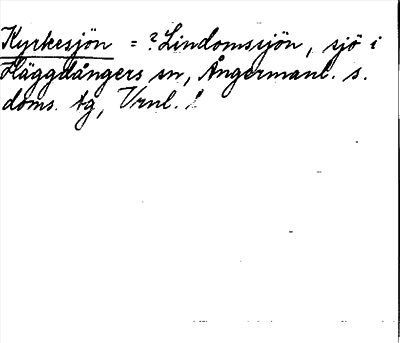 Kyrkesjön = ? Lindomssjön, sjö i
Häggdångers sn, Ångermanl. s.
doms. tg, Vrnl.